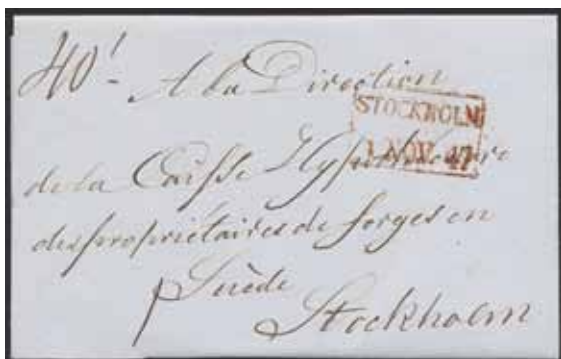 40'-
A la Direction
STOCKHOLM
1 NOV. 47
de la Caisse Hypothécaire
des propriétaires de forges en
Suède
Stockholm